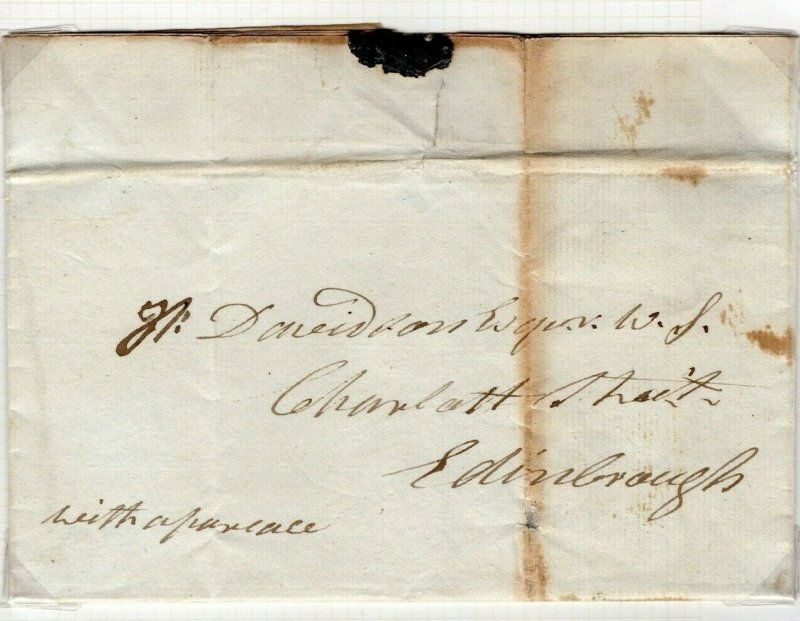 H: Daveidson Esqr. W. S.
Charlott Street
Edinbrough
with a parcace